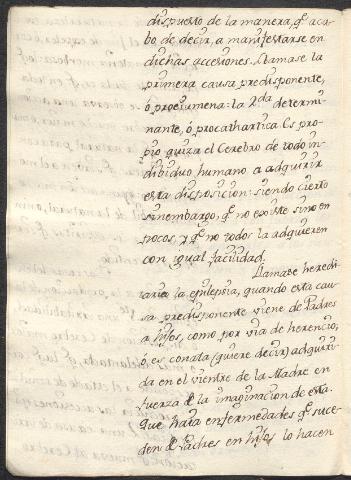 dispuesto de la manera, q.e aca-
bo de decir, a manifestarse en
dichas accesiones. Llamase la
primera causa predisponente,
ó procumena: la 2.da determi-
nante, ó procathartica. Es pro-
pio quiza el Cerebro de todo in-
dibiduo humano a adquirir
esta disposicion: siendo cierto
sinembargo, q.e no existe sino en
pocos, y q.e no todos la adquieren
con igual facilidad.
Llamase heredi-
taria la epilepsia, quando esta cau-
sa predisponente viene de Padres
a hijos, como por via de herencia,
ó es conata (quiere decir) adquiri-
da en el vientre de la Madre en
fuerza de la imaginacion de esta.
Que haia enfermedades q.e suce-
den de Padres en hijos lo hacen